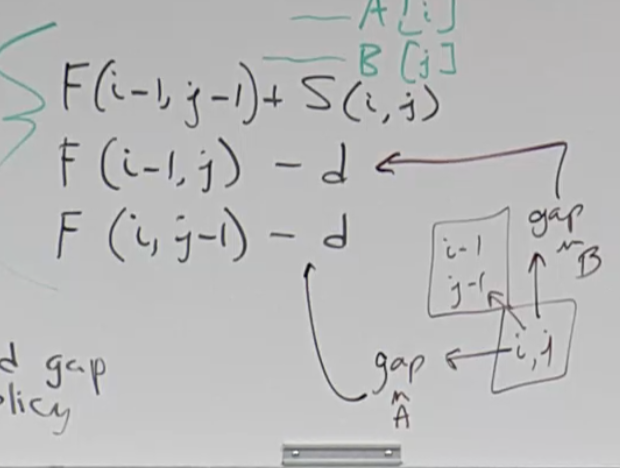 A[i]
B[j]
F(i-1, j-1) + S(i, j)
F(i-1, j) - d
F(i, j-1) - d
gap
in B
i-1
j-1
i, j
gap
in A
d gap
licy